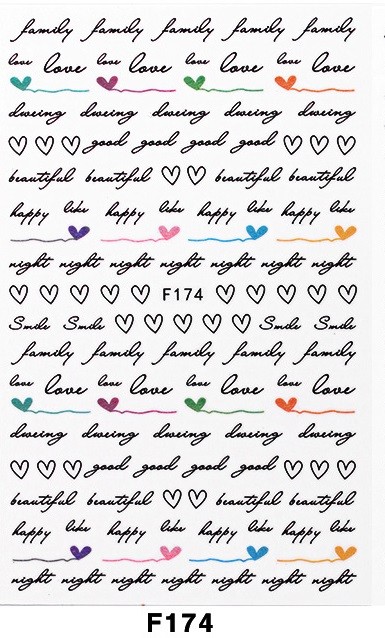 family family family family family
love love love love love love love love
dweing dweing dweing dweing dweing
good good good good
beautiful beautiful beautiful beautiful
happy like happy like happy like happy like
night night night night night night night
F174
Smile Smile Smile Smile
family family family family family
love love love love love love love love
dweing dweing dweing dweing dweing
good good good good
beautiful beautiful beautiful beautiful
happy like happy like happy like happy like
night night night night night night night
F174